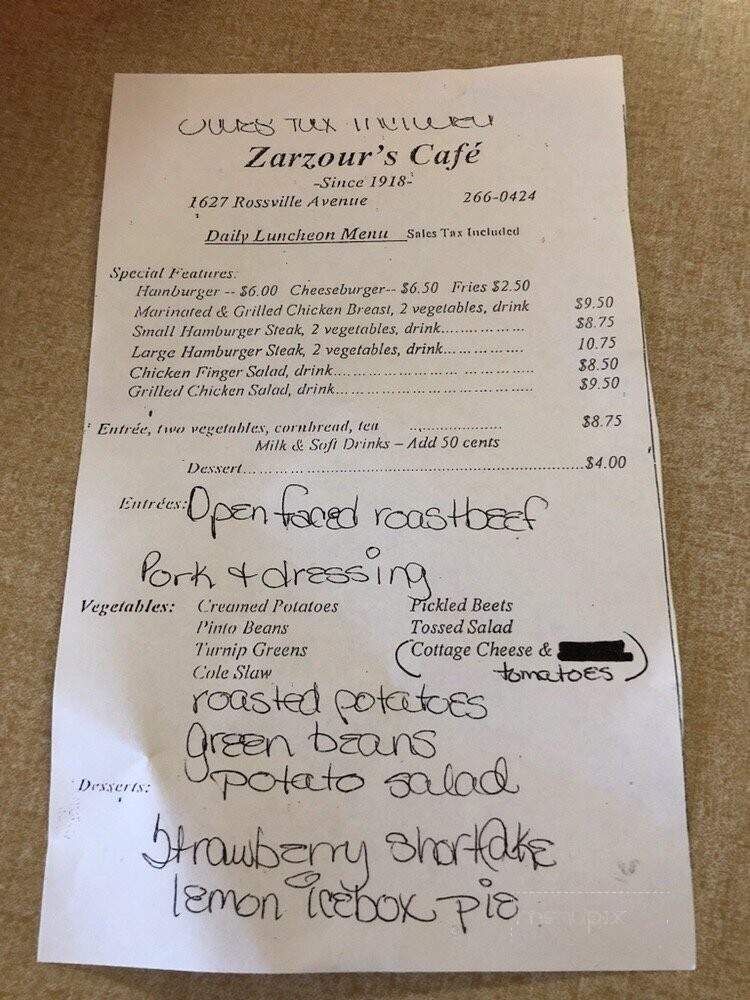 Sales Tax Included
Zarzour's Café
-Since 1918-
1627 Rossville Avenue 266-0424
Daily Luncheon Menu Sales Tax Included
Special Features:
Hamburger -- $6.00 Cheeseburger-- $6.50 Fries $2.50
Marinated & Grilled Chicken Breast, 2 vegetables, drink $9.50
Small Hamburger Steak, 2 vegetables, drink.................. $8.75
Large Hamburger Steak, 2 vegetables, drink.................. 10.75
Chicken Finger Salad, drink............................................ $8.50
Grilled Chicken Salad, drink............................................ $9.50
Entrée, two vegetables, cornbread, tea ........................ $8.75
Milk & Soft Drinks – Add 50 cents
Dessert..................................................................$4.00
Entrées: Open faced roast beef
Pork & dressing
Vegetables: Creamed Potatoes Pickled Beets
Pinto Beans Tossed Salad
Turnip Greens (Cottage Cheese &
Cole Slaw tomatoes)
roasted potatoes
green beans
potato salad
Desserts:
Strawberry shortcake
lemon icebox pie
menupix